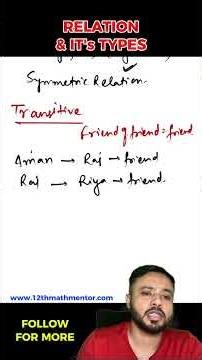 RELATION
& IT's TYPES
Symmetric Relation.
Transitive
Friend of friend = friend
Aman → Raj → friend
Raj → Riya → friend.
www.12thmathmentor.com
FOLLOW
FOR MORE